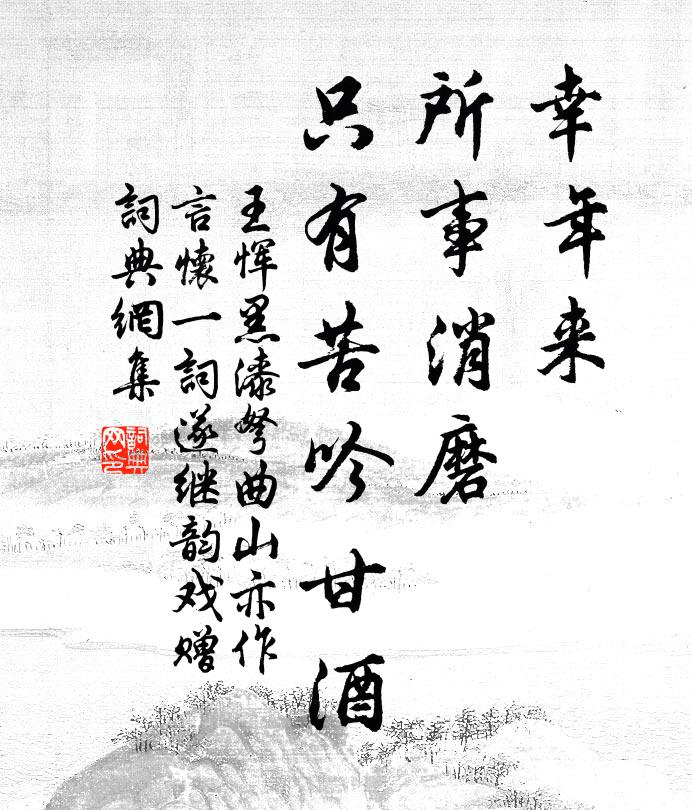 幸年来
所事消磨
只有苦吟甘酒
王恽黑漆弩曲山亦作
言懷一詞遂继韵戏赠
詞典網集
詞典
网印